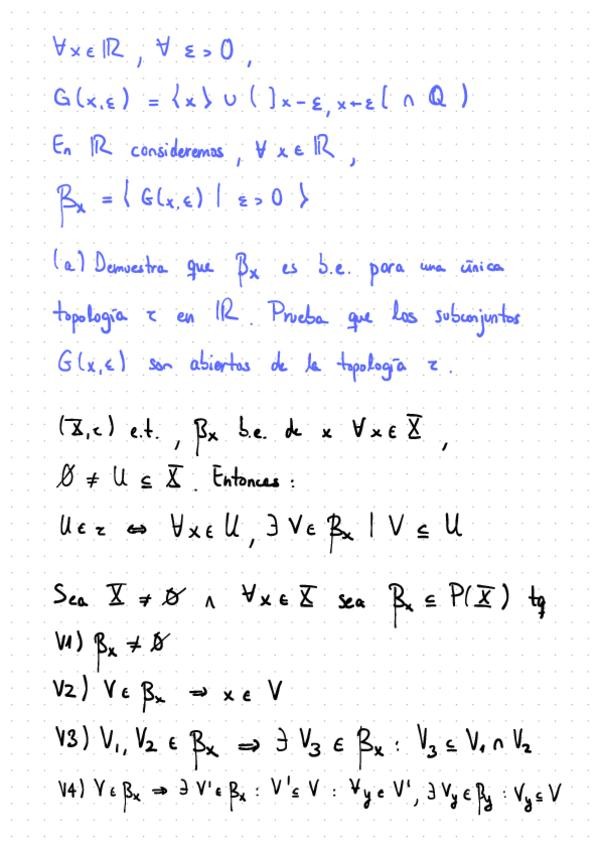 ∀x∈ℝ, ∀ ε>0,
G(x,ε) = {x} ∪ (]x-ε, x+ε[ ∩ ℚ)
En ℝ consideremos, ∀x∈ℝ,
βₓ = { G(x,ε) | ε>0 }
(a) Demuestra que βₓ es b.e. para una única
topología τ en ℝ. Prueba que los subconjuntos
G(x,ε) son abiertos de la topología τ.
(X,τ) e.t., βₓ b.e. de x ∀x∈X,
∅ ≠ U ⊆ X. Entonces:
U∈τ ⇔ ∀x∈U, ∃V∈βₓ | V ⊆ U
Sea X ≠ ∅ ∧ ∀x∈X sea βₓ ⊆ P(X) tq
V1) βₓ ≠ ∅
V2) V∈βₓ ⇒ x∈V
V3) V₁, V₂ ∈ βₓ ⇒ ∃ V₃ ∈ βₓ : V₃ ⊆ V₁ ∩ V₂
V4) V∈βₓ ⇒ ∃V'∈βₓ : V'⊆V : ∀y∈V', ∃V_y∈β_y : V_y⊆V